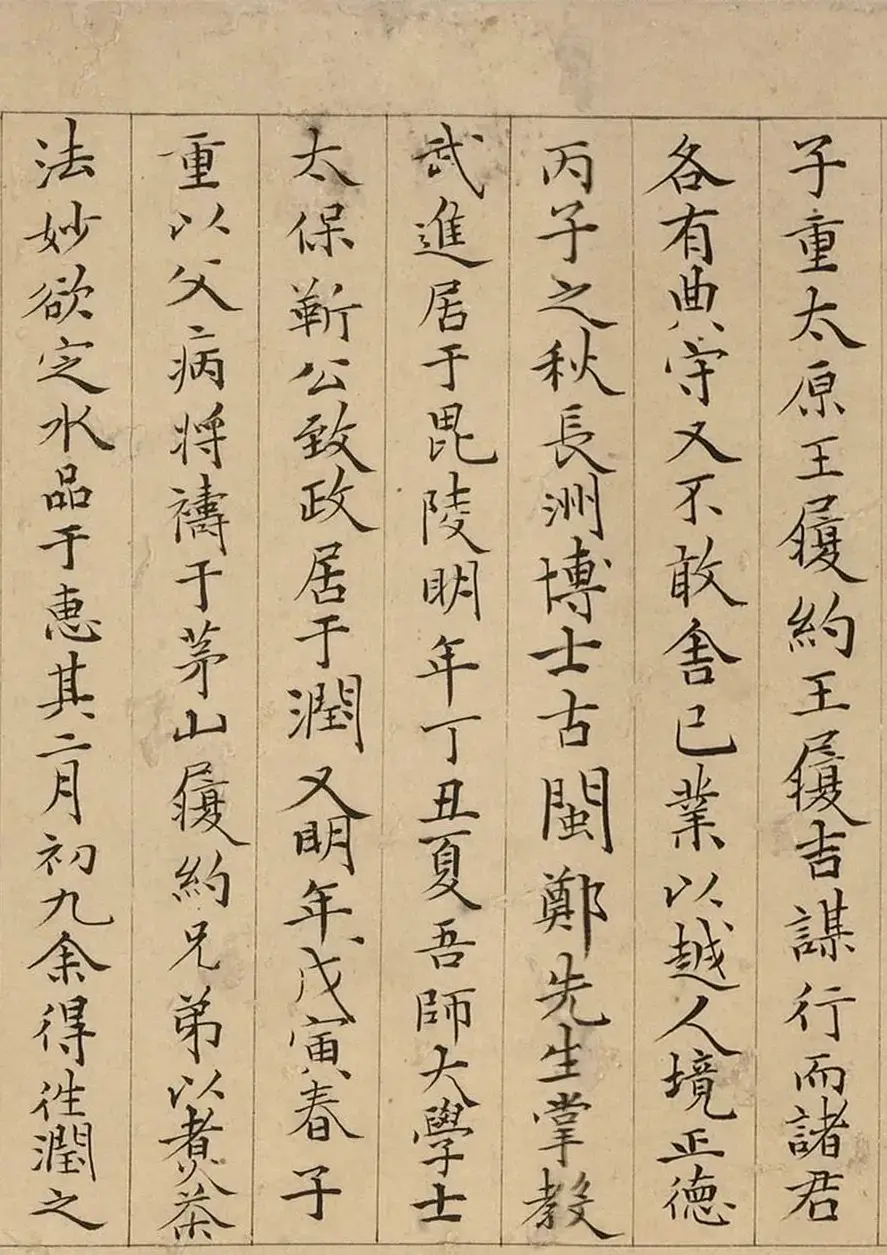 子重太原王履約王履吉謀行而諸君
各有典守又不敢舍已業以越人境正德
丙子之秋長洲博士古閩鄭先生掌教
武進居于毘陵明年丁丑夏吾師大學士
太保靳公致政居于潤又明年戊寅春子
重以父病将禱于茅山履約兄弟以煮茶
法妙欲定水品于惠其二月初九余得往潤之